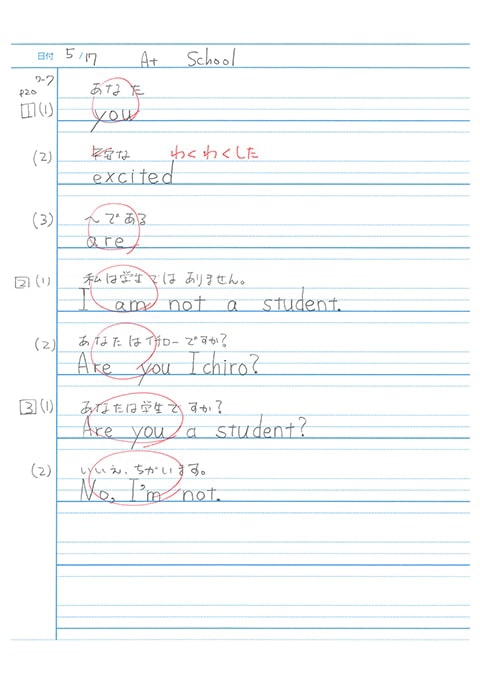 日付 5/17 At School
ワーク
p20
1 (1) あなた
you
(2) な わくわくした
excited
(3) ～である
are
2 (1) 私は学生ではありません。
I am not a student.
(2) あなたはイチローですか?
Are you Ichiro?
3 (1) あなたは学生ですか?
Are you a student?
(2) いいえ、ちがいます。
No, I'm not.